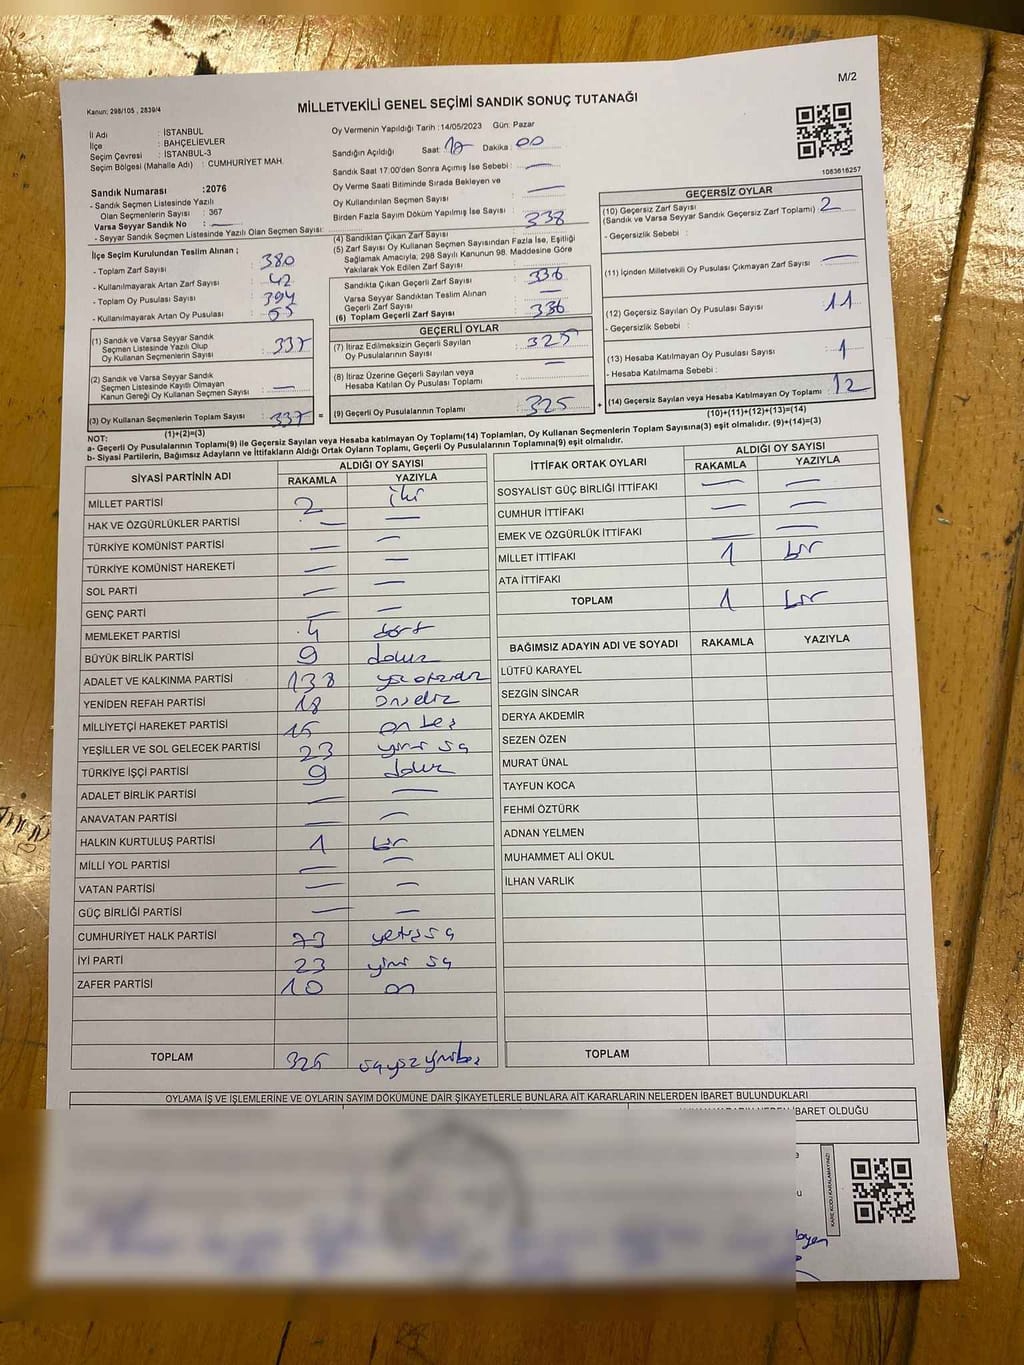 M/2
Kanun: 298/105 , 2839/4
MİLLETVEKİLİ GENEL SEÇİMİ SANDIK SONUÇ TUTANAĞI
İl Adı : İSTANBUL
İlçe : BAHÇELİEVLER
Seçim Çevresi : İSTANBUL-3
Seçim Bölgesi (Mahalle Adı) : CUMHURİYET MAH.
Sandık Numarası :2076
- Sandık Seçmen Listesinde Yazılı
Olan Seçmenlerin Sayısı : 367
Varsa Seyyar Sandık No :
- Seyyar Sandık Seçmen Listesinde Yazılı Olan Seçmen Sayısı:
İlçe Seçim Kurulundan Teslim Alınan ;
- Toplam Zarf Sayısı : 380
- Kullanılmayarak Artan Zarf Sayısı : 42
- Toplam Oy Pusulası Sayısı : 394
- Kullanılmayarak Artan Oy Pusulası :
(1) Sandık ve Varsa Seyyar Sandık
Seçmen Listesinde Yazılı Olup
Oy Kullanan Seçmenlerin Sayısı : 337
(2) Sandık ve Varsa Seyyar Sandık
Seçmen Listesinde Kayıtlı Olmayan
Kanun Gereği Oy Kullanan Seçmen Sayısı : —
(3) Oy Kullanan Seçmenlerin Toplam Sayısı : 337 =
(1)+(2)=(3)
Oy Vermenin Yapıldığı Tarih :14/05/2023 Gün: Pazar
Sandığın Açıldığı Saat: Dakika : 00
Sandık Saat 17:00'den Sonra Açımış İse Sebebi : —
Oy Verme Saati Bitiminde Sırada Bekleyen ve
Oy Kullandırılan Seçmen Sayısı : —
Birden Fazla Sayım Döküm Yapılmış İse Sayısı :
(4) Sandıktan Çıkan Zarf Sayısı : 338
(5) Zarf Sayısı Oy Kullanan Seçmen Sayısından Fazla İse, Eşitliği
Sağlamak Amacıyla; 298 Sayılı Kanunun 98. Maddesine Göre
Yakılarak Yok Edilen Zarf Sayısı :
Sandıkta Çıkan Geçerli Zarf Sayısı : 336
Varsa Seyyar Sandıktan Teslim Alınan
Geçerli Zarf Sayısı : —
(6) Toplam Geçerli Zarf Sayısı : 336
GEÇERLİ OYLAR
(7) İtiraz Edilmeksizin Geçerli Sayılan
Oy Pusulalarının Sayısı : 325
(8) İtiraz Üzerine Geçerli Sayılan veya
Hesaba Katılan Oy Pusulası Toplamı : —
(9) Geçerli Oy Pusulalarının Toplamı : 325 +
1083616257
GEÇERSİZ OYLAR
(10) Geçersiz Zarf Sayısı
(Sandık ve Varsa Seyyar Sandık Geçersiz Zarf Toplamı) : 2
- Geçersizlik Sebebi :
(11) İçinden Milletvekili Oy Pusulası Çıkmayan Zarf Sayısı : —
(12) Geçersiz Sayılan Oy Pusulası Sayısı : 11
- Geçersizlik Sebebi :
(13) Hesaba Katılmayan Oy Pusulası Sayısı : 1
- Hesaba Katılmama Sebebi :
(14) Geçersiz Sayılan veya Hesaba Katılmayan Oy Toplamı : 12
(10)+(11)+(12)+(13)=(14)
NOT:
a- Geçerli Oy Pusulalarının Toplamı(9) ile Geçersiz Sayılan veya Hesaba katılmayan Oy Toplamı(14) Toplamları, Oy Kullanan Seçmenlerin Toplam Sayısına(3) eşit olmalıdır. (9)+(14)=(3)
b- Siyasi Partilerin, Bağımsız Adayların ve İttifakların Aldığı Ortak Oyların Toplamı, Geçerli Oy Pusulalarının Toplamına(9) eşit olmalıdır.
SİYASİ PARTİNİN ADI ALDIĞI OY SAYISI
RAKAMLA YAZIYLA
MİLLET PARTİSİ 2 iki
HAK VE ÖZGÜRLÜKLER PARTİSİ — —
TÜRKİYE KOMÜNİST PARTİSİ — —
TÜRKİYE KOMÜNİST HAREKETİ — —
SOL PARTİ — —
GENÇ PARTİ — —
MEMLEKET PARTİSİ 4 dört
BÜYÜK BİRLİK PARTİSİ 9 dokuz
ADALET VE KALKINMA PARTİSİ 138
YENİDEN REFAH PARTİSİ 18 onsekiz
MİLLİYETÇİ HAREKET PARTİSİ 15 on beş
YEŞİLLER VE SOL GELECEK PARTİSİ 23 yirmi üç
TÜRKİYE İŞÇİ PARTİSİ 9 dokuz
ADALET BİRLİK PARTİSİ — —
ANAVATAN PARTİSİ — —
HALKIN KURTULUŞ PARTİSİ 1 bir
MİLLİ YOL PARTİSİ — —
VATAN PARTİSİ — —
GÜÇ BİRLİĞİ PARTİSİ — —
CUMHURİYET HALK PARTİSİ 73 yetmiş üç
İYİ PARTİ 23 yirmi üç
ZAFER PARTİSİ 10 on
TOPLAM 325 üçyüzyirmibeş
İTTİFAK ORTAK OYLARI ALDIĞI OY SAYISI
RAKAMLA YAZIYLA
SOSYALİST GÜÇ BİRLİĞİ İTTİFAKI — —
CUMHUR İTTİFAKI — —
EMEK VE ÖZGÜRLÜK İTTİFAKI — —
MİLLET İTTİFAKI 1 bir
ATA İTTİFAKI
TOPLAM 1 bir
BAĞIMSIZ ADAYIN ADI VE SOYADI RAKAMLA YAZIYLA
LÜTFÜ KARAYEL
SEZGİN SİNCAR
DERYA AKDEMİR
SEZEN ÖZEN
MURAT ÜNAL
TAYFUN KOCA
FEHMİ ÖZTÜRK
ADNAN YELMEN
MUHAMMET ALİ OKUL
İLHAN VARLIK
TOPLAM
OYLAMA İŞ VE İŞLEMLERİNE VE OYLARIN SAYIM DÖKÜMÜNE DAİR ŞİKAYETLERLE BUNLARA AİT KARARLARIN NELERDEN İBARET BULUNDUKLARI
İBARET OLDUĞU
KARE KODU KARALAMAYINIZ!